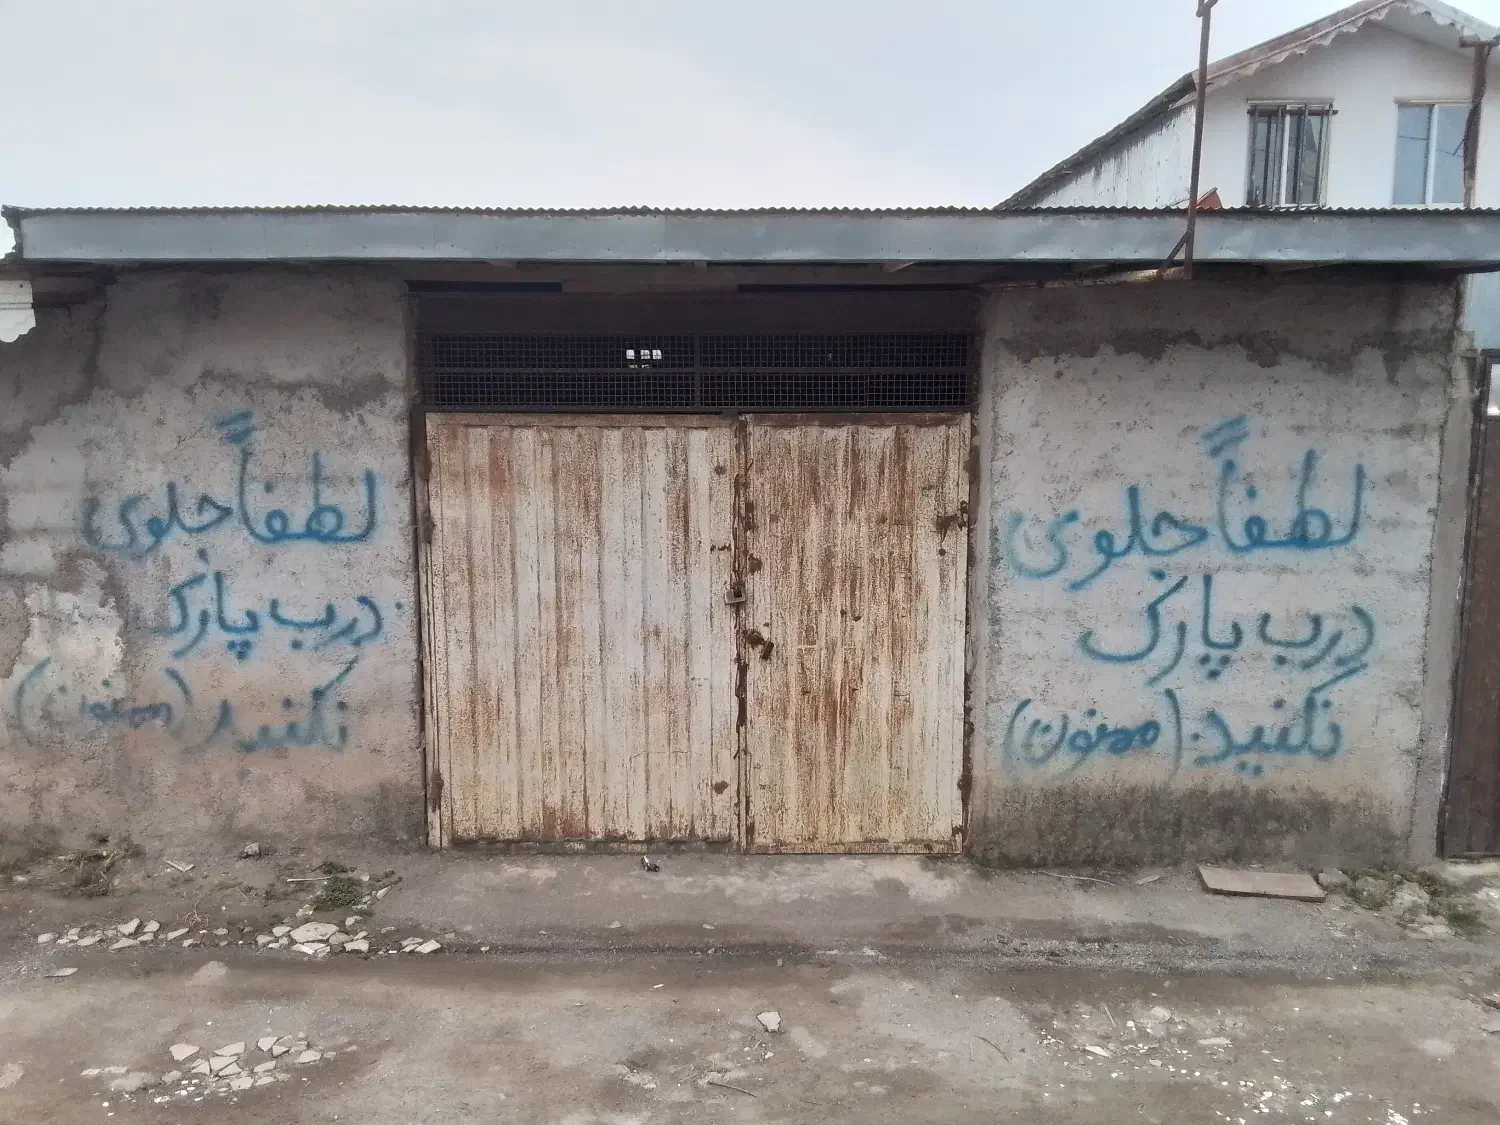 لطفاً جلوی
درب پارک
نکنید. (ممنون)
لطفاً جلوی
درب پارک
نکنید (ممنون)